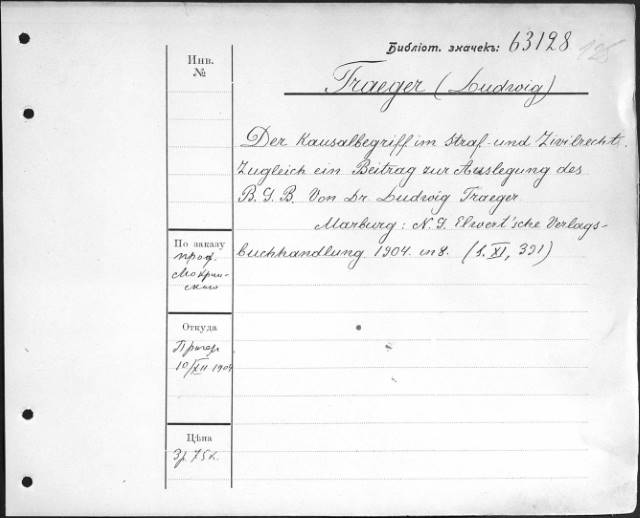 Библіот. значекъ: 63128
125
Инв.
№
Traeger (Ludwig)
Der Kausalbegriff im Straf- und Zivilrecht.
Zugleich ein Beitrag zur Auslegung des
B. G. B. Von Dr. Ludwig Traeger
Marburg: N. G. Elwert'sche Verlags-
buchhandlung 1904. in 8. (S. XI, 391)
По заказу
проф.
Мокрин-
скаго
Откуда
Прагер
10/XII 1904
Цѣна
3 р 75 к.